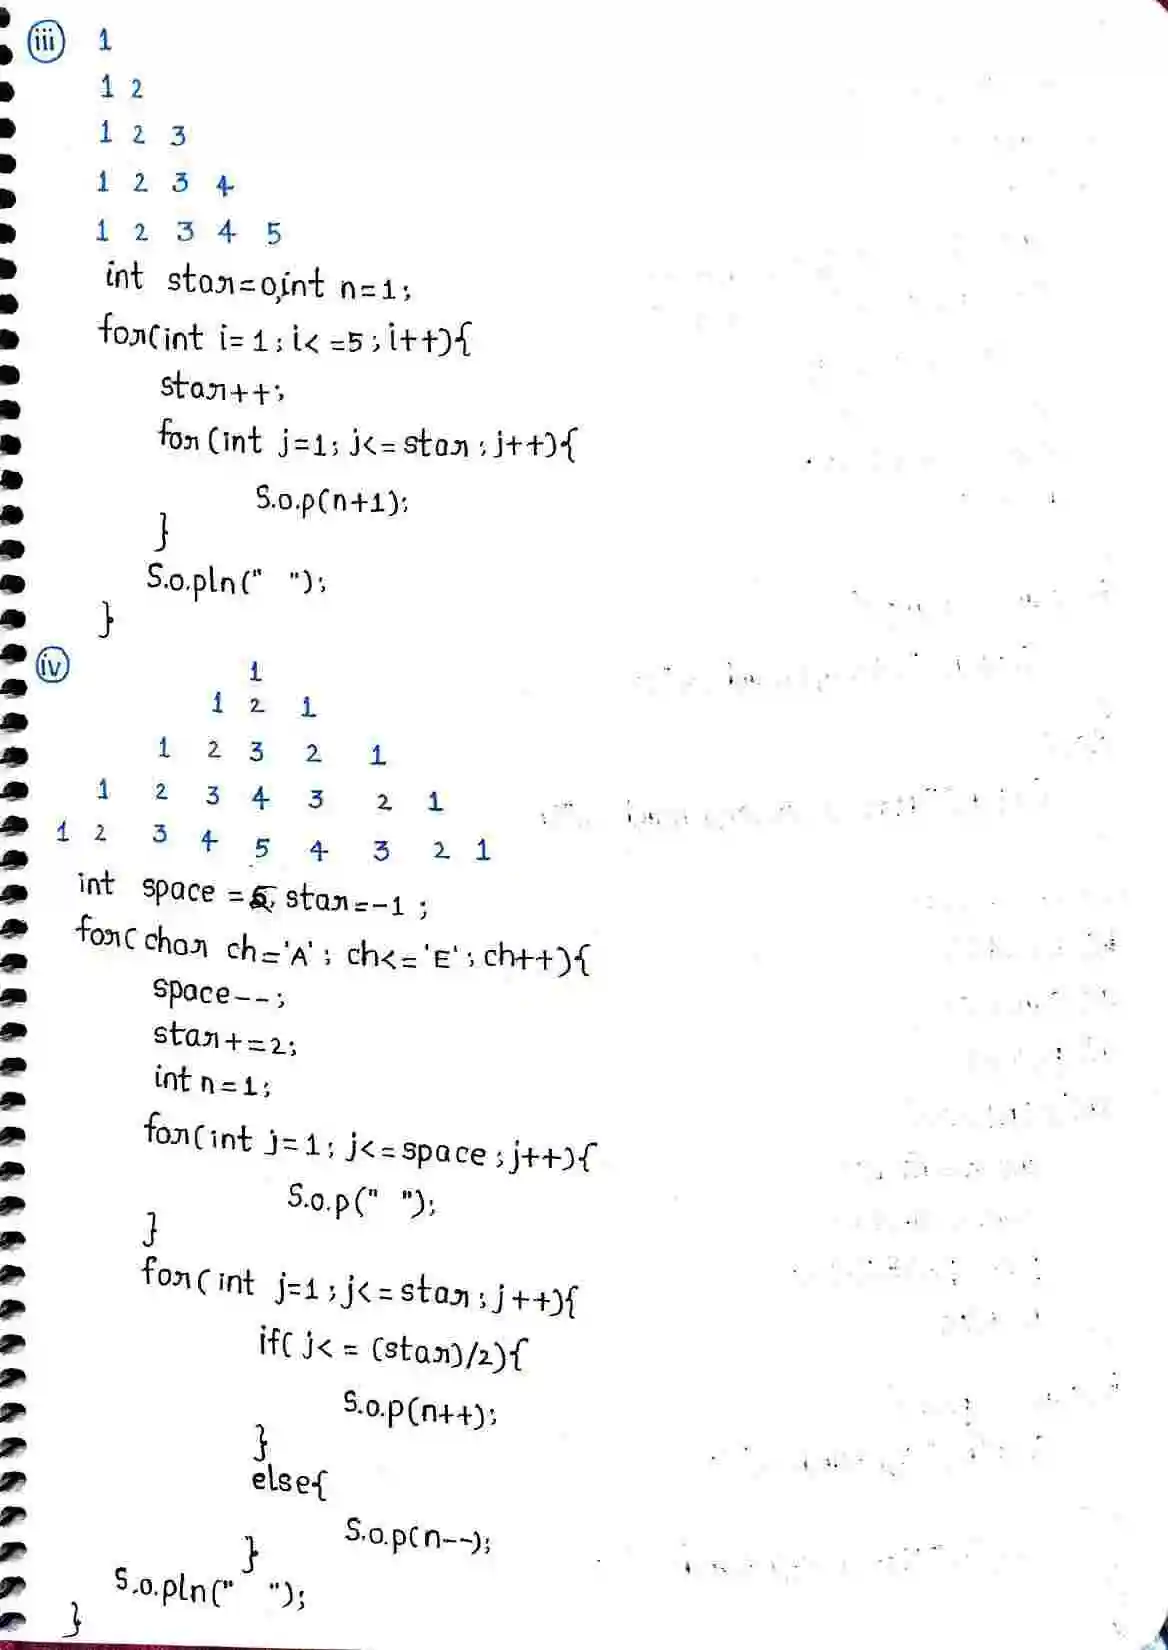 iii 1
1 2
1 2 3
1 2 3 4
1 2 3 4 5
int star=0,int n=1;
for(int i=1;i<=5;i++){
star++;
for(int j=1;j<=star;j++){
S.o.p(n+1);
}
S.o.pln(" ");
}
iv 1
1 2 1
1 2 3 2 1
1 2 3 4 3 2 1
1 2 3 4 5 4 3 2 1
int space = 5, star=-1;
for(char ch='A'; ch<='E'; ch++){
space--;
star+=2;
int n=1;
for(int j=1; j<=space;j++){
S.o.p(" ");
}
for(int j=1;j<=star;j++){
if( j<= (star)/2){
S.o.p(n++);
}
else{
S.o.p(n--);
}
S.o.pln(" ");
}